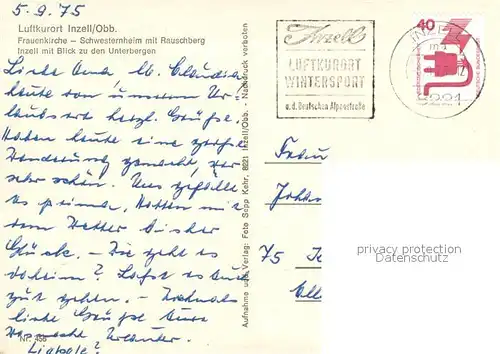 5.9.75
Luftkurort Inzell/Obb.
Frauenkirche – Schwesternheim mit Rauschberg
Inzell mit Blick zu den Unterbergen
Liebe Oma, lb. Claudia
heute von unserem Ur-
laubsort herzl. Grüße.
Haben heute eine große
Wanderung gemacht, war
sehr schön. Uns gefällt
es prima, hatten mit
dem Wetter bisher
Glück. – Wie geht es
daheim? Laßt es Euch
gut gehen. – Nochmals
liebe Grüße Eure
Urlauber.
Nr. 456
Aufnahme und Verlag: Foto Sepp Kehr, 8221 Inzell/Obb. - Nachdruck verboten
Inzell
LUFTKURORT
WINTERSPORT
a.d. Deutschen Alpenstraße
INZELL
8221
40
Frau
75
privacy protection
Datenschutz